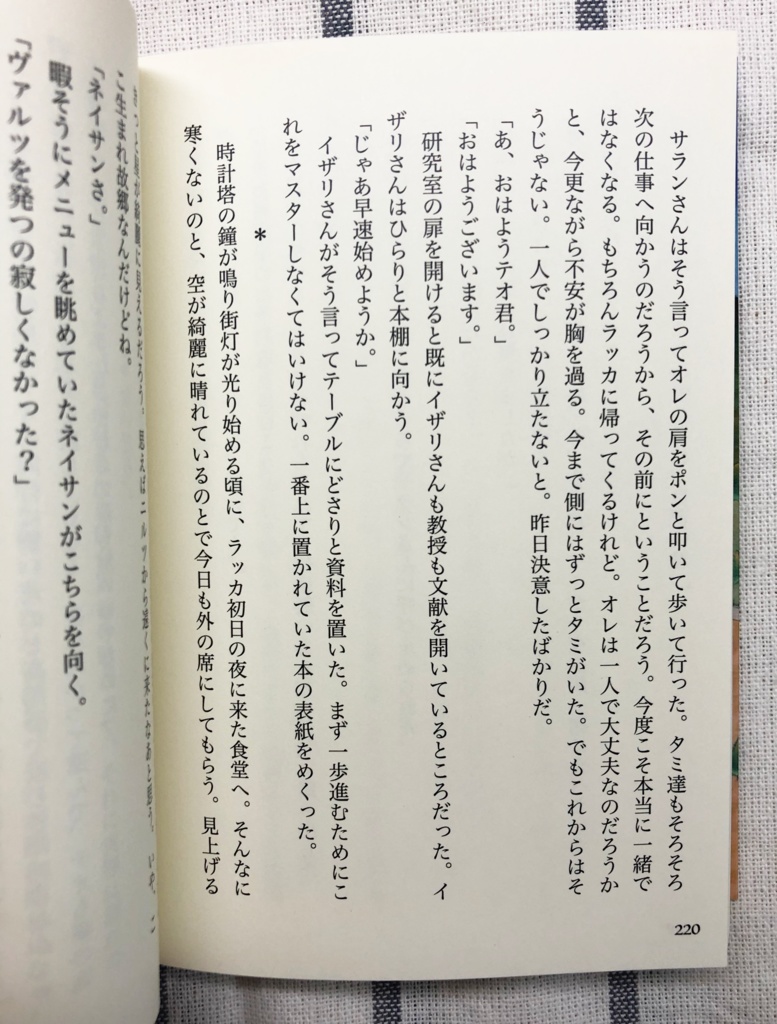 サランさんはそう言ってオレの肩をポンと叩いて歩いて行った。タミ達もそろそろ
次の仕事へ向かうのだろうから、その前にということだろう。今度こそ本当に一緒で
はなくなる。もちろんラッカに帰ってくるけれど。オレは一人で大丈夫なのだろうか
と、今更ながら不安が胸を過る。今まで側にはずっとタミがいた。でもこれからはそ
うじゃない。一人でしっかり立たないと。昨日決意したばかりだ。
「あ、おはようテオ君。」
「おはようございます。」
研究室の扉を開けると既にイザリさんも教授も文献を開いているところだった。イ
ザリさんはひらりと本棚に向かう。
「じゃあ早速始めようか。」
イザリさんがそう言ってテーブルにどさりと資料を置いた。まず一歩進むためにこ
れをマスターしなくてはいけない。一番上に置かれていた本の表紙をめくった。
*
時計塔の鐘が鳴り街灯が光り始める頃に、ラッカ初日の夜に来た食堂へ。そんなに
寒くないのと、空が綺麗に晴れているのとで今日も外の席にしてもらう。見上げる
220
綺麗に見えるだろう。思えばニルツから遠くに来たなあと思う。いや、こ
こ生まれ故郷なんだけどね。
「ネイサンさ。」
暇そうにメニューを眺めていたネイサンがこちらを向く。
「ヴァルツを発つの寂しくなかった?」